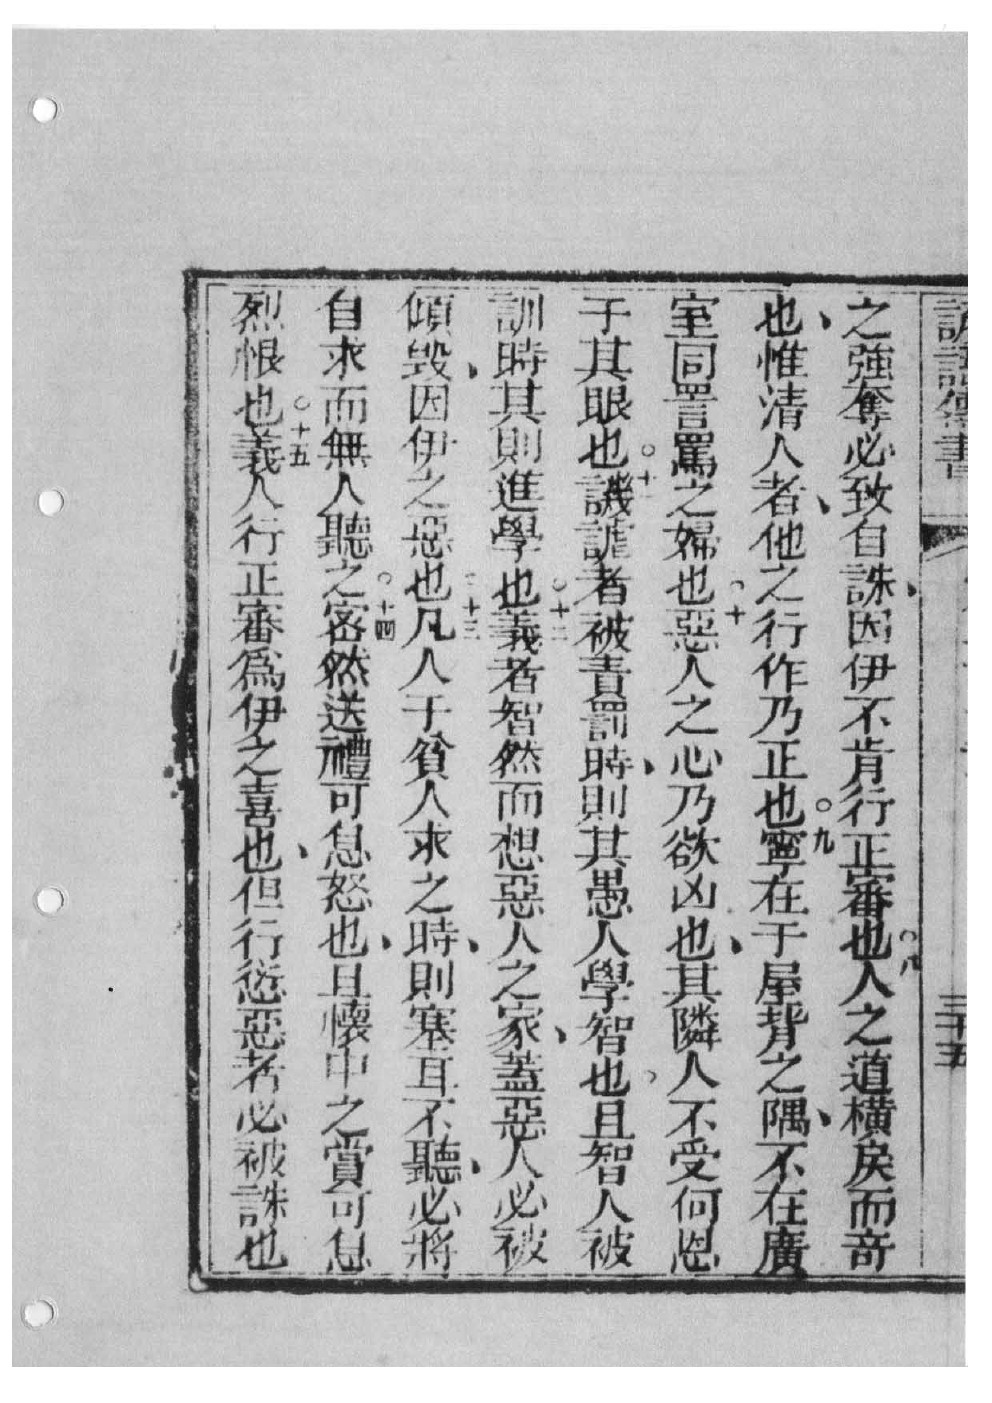 之強奪必致自誅因伊不肯行正審也○八人之道橫戾而奇
也惟清人者他之行作乃正也○九寧在于屋背之隅不在廣
室同詈罵之婦也○十惡人之心乃欲凶也其隣人不受何恩
于其眼也○十一譏謔者被責罰時則其愚人學智也且智人被
訓時其則進學也○十二義者智然而想惡人之家蓋惡人必被
傾毀因伊之惡也○十三凡人于貧人求之時則塞耳不聽必將
自求而無人聽之○十四密然送禮可息怒也且懷中之賞可息
烈恨也○十五義人行正審爲伊之喜也但行愆惡者必被誅也
三十五